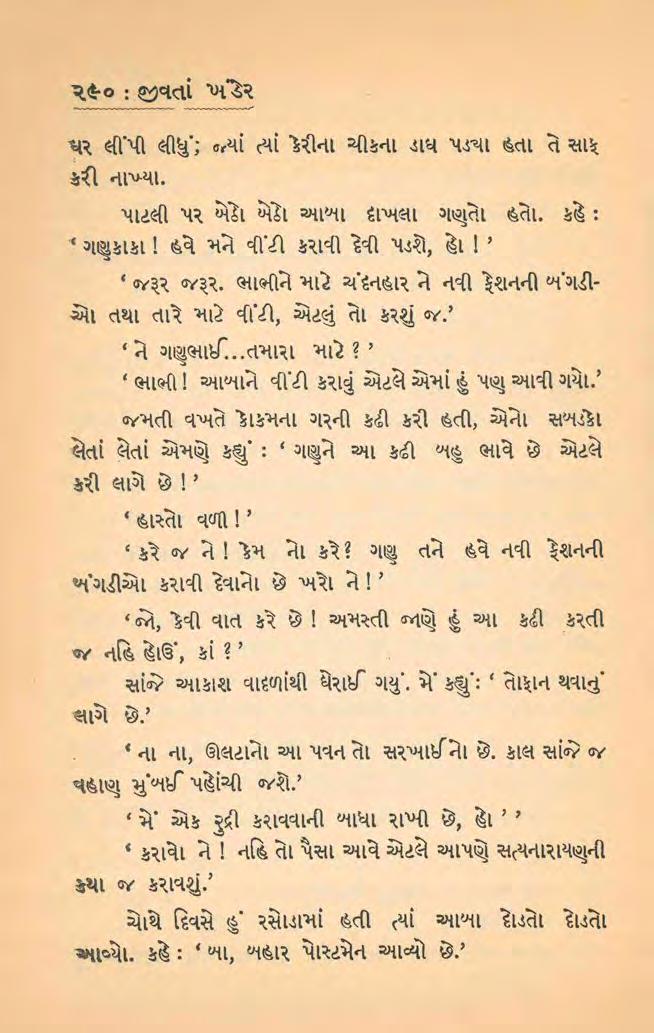 ૨૯૦ : જીવતાં ખંડેર
ઘર લીંપી લીધું; જ્યાં ત્યાં કેરીના ચીકના ડાઘ પડ્યા હતા તે સાફ
કરી નાખ્યા.
પાટલી પર બેઠો બેઠો આબા દાખલા ગણતો હતો. કહે :
‘ ગણુકાકા ! હવે મને વીંટી કરાવી દેવી પડશે, હો ! ’
‘ જરૂર જરૂર. ભાભીને માટે ચંદનહાર ને નવી ફેશનની બંગડી-
ઓ તથા તારે માટે વીંટી, એટલું તો કરશું જ.’
‘ ને ગણુભાઈ...તમારા માટે ? ’
‘ ભાભી ! આબાને વીંટી કરાવું એટલે એમાં હું પણ આવી ગયો.’
જમતી વખતે કોકમના ગરની કઢી કરી હતી, એનો સબડકો
લેતાં લેતાં એમણે કહ્યું : ‘ ગણુને આ કઢી બહુ ભાવે છે એટલે
કરી લાગે છે ! ’
‘ હાસ્તો વળી ! ’
‘ કરે જ ને ! કેમ નો કરે? ગણુ તને હવે નવી ફેશનની
બંગડીઓ કરાવી દેવાનો છે ખરો ને ! ’
‘જો, કેવી વાત કરે છે ! અમસ્તી જાણે હું આ કઢી કરતી
જ નહિ હોઉં, કાં ? ’
સાંજે આકાશ વાદળાંથી ઘેરાઈ ગયું. મેં કહ્યું: ‘ તોફાન થવાનું
લાગે છે.’
‘ ના ના, ઊલટાનો આ પવન તો સરખાઈનો છે. કાલ સાંજે જ
વહાણ મુંબઈ પહોંચી જશે.’
‘ મેં એક રુદ્રી કરાવવાની બાધા રાખી છે, હો ’ ’
‘ કરાવો ને ! નહિ તો પૈસા આવે એટલે આપણે સત્યનારાયણની
કથા જ કરાવશું.’
ચોથે દિવસે હું રસોડામાં હતી ત્યાં આબા દોડતો દોડતો
આવ્યો. કહે : ‘ બા, બહાર પોસ્ટમેન આવ્યો છે.’